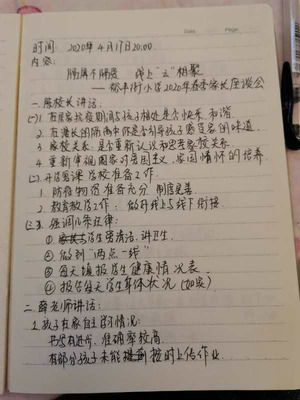 Date
Page
时间 2020年4月17日20:00.
内容:
肠属不肠费 线上"云"相聚
——都平街小学2020年春季家长座谈会
一、殷校长讲话:
(一)1.在居家抗疫期间与孩子相处是否快乐、和谐
2.在漫长的隔离中你是否引导孩子感受家的味道
3.家校关系:是否重新认识和思考家校关系.
4.重新审视国家对爱国主义、家国情怀的培养
(二)开学复课学校准备工作:
1.防疫物资准备充分 制度完善
2.教育教学工作:做好线上与线下衔接
(三)强调几条纪律:
① 学生要清洁、讲卫生.
② 做到"两点一线"
③ 每天填报学生健康情况表.
④ 报告每天学生身体状况
二、薛老师讲话:
1.孩子在家自主的情况:
书写有进步,准确率较高.
有部分孩子未能按时上传作业.